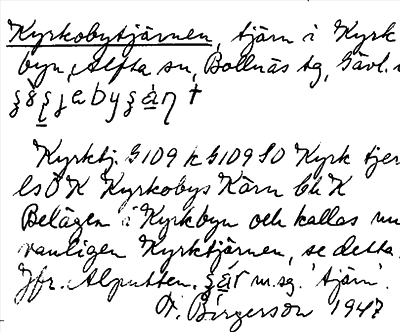 Kyrkobytjärnen, tjärn i Kyrk
byn, Alfta sn, Bollnäs tg, Gävl.
Kyrktj. G109 k G109 SO Kyrk tjer
ls O K Kyrkobys Kärn bh K
Belägen i Kyrkbyn och kallas nu
vanligen Kyrktjärnen, se detta.
Jfr. Alputten. m.sg. 'tjärn'.
F. Birgerson 1947